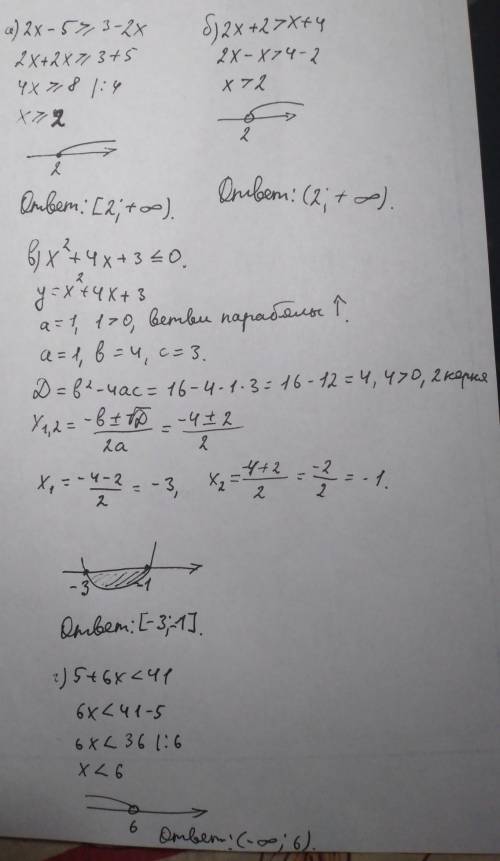 а) 2x - 5 ⩾ 3 - 2x
2x + 2x ⩾ 3 + 5
4x ⩾ 8 |:4
x ⩾ 2
2
Ответ: [2; +∞).
б) 2x + 2 > x + 4
2x - x > 4 - 2
x > 2
2
Ответ: (2; +∞).
в) x² + 4x + 3 ≤ 0.
y = x² + 4x + 3
a = 1, 1 > 0, ветви параболы ↑.
a = 1, в = 4, c = 3.
Д = в² - 4ac = 16 - 4·1·3 = 16 - 12 = 4, 4 > 0, 2 корня
x₁,₂ = (-в ± √D)/2a = (-4 ± 2)/2
x₁ = (-4 - 2)/2 = -3, x₂ = (-4 + 2)/2 = -2/2 = -1.
-3 -1
Ответ: [-3; -1].
г) 5 + 6x < 41
6x < 41 - 5
6x < 36 |:6
x < 6
6
Ответ: (-∞; 6).